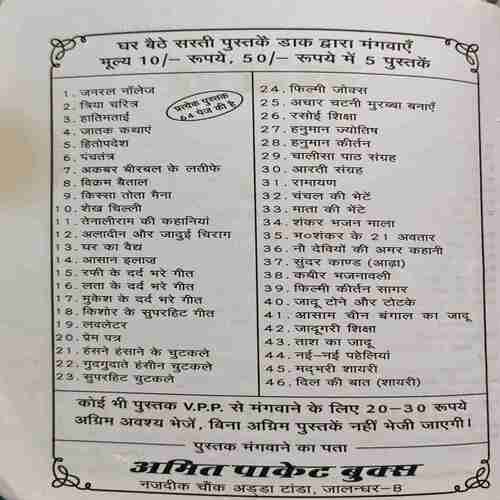 घर बैठे सस्ती पुस्तकें डाक द्वारा मंगवाएँ
मूल्य 10/– रूपये, 50/– रूपये में 5 पुस्तकें
प्रत्येक पुस्तक
64 पेज की है
1. जनरल नॉलेज
2. त्रिया चरित्र
3. हातिमताई
4. जातक कथाएं
5. हितोपदेश
6. पंचतंत्र
7. अकबर बीरबल के लतीफे
8. विक्रम बैताल
9. किस्सा तोता मैना
10. शेख चिल्ली
11. तेनालीराम की कहानियां
12. अलादीन और जादुई चिराग
13. घर का वैद्य
14. आसान इलाज
15. रफी के दर्द भरे गीत
16. लता के दर्द भरे गीत
17. मुकेश के दर्द भरे गीत
18. किशोर के सुपरहिट गीत
19. लवलेटर
20. प्रेम पत्र
21. हंसने हंसाने के चुटकले
22. गुदगुदाते हंसीन चुटकले
23. सुपरहिट चुटकले
24. फिल्मी जोक्स
25. अचार चटनी मुरब्बा बनाएँ
26. रसोई शिक्षा
27. हनुमान ज्योतिष
28. हनुमान कीर्तन
29. चालीसा पाठ संग्रह
30. आरती संग्रह
31. रामायण
32. चंचल की भेटें
33. माता की भेंटे
34. शंकर भजन माला
35. भ०शंकर के 21 अवतार
36. नौ देवियों की अमर कहानी
37. सुंदर काण्ड (आढ़ा)
38. कबीर भजनावली
39. फिल्मी कीर्तन सागर
40. जादू टोने और टोटके
41. आसाम चीन बंगाल का जादू
42. जादूगरी शिक्षा
43. ताश का जादू
44. नई-नई पहेलियां
45. मदभरी शायरी
46. दिल की बात (शायरी)
कोई भी पुस्तक V.P.P. से मंगवाने के लिए 20–30 रूपये
अग्रिम अवश्य भेजें, बिना अग्रिम पुस्तकें नहीं भेजी जाएगी।
पुस्तक मंगवाने का पता
अमित पाकेट बुक्स
नजदीक चौंक अड्डा टांडा, जालन्धर–8